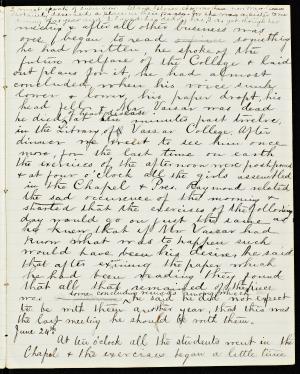 meeting & after all other business was
over, began to read over something
he had written, he spoke of the
future welfare of the College & laid
out plans for it, he had almost
concluded when his voice sunk
lower & lower, his paper dropt, his
head fell & Mr. Vassar was dead.
of heart disease
he died, at ten minutes past twelve,
in the Library of Vassar College. After
dinner we went to see him once
more for the last time on earth
the exercises of the afternoon were postponed
& at four o'clock all the girls assembled
in the Chapel & Pres. Raymond related
the sad occurence of the morning &
started that the exercises of the following
day would go on just the same as
he knew that if Mr Vassar had
know what was to happen such
would have been his desire, he said
that after examining the paper which
he had been reading they found
that all that remained of the piece
some concluding remarks in saying farewell
was he said he did not expect
to be with them another year, that this was
the last meeting he should be with them.
June 24th
At ten o'clock all the students went in the
Chapel & the exercises began a little time